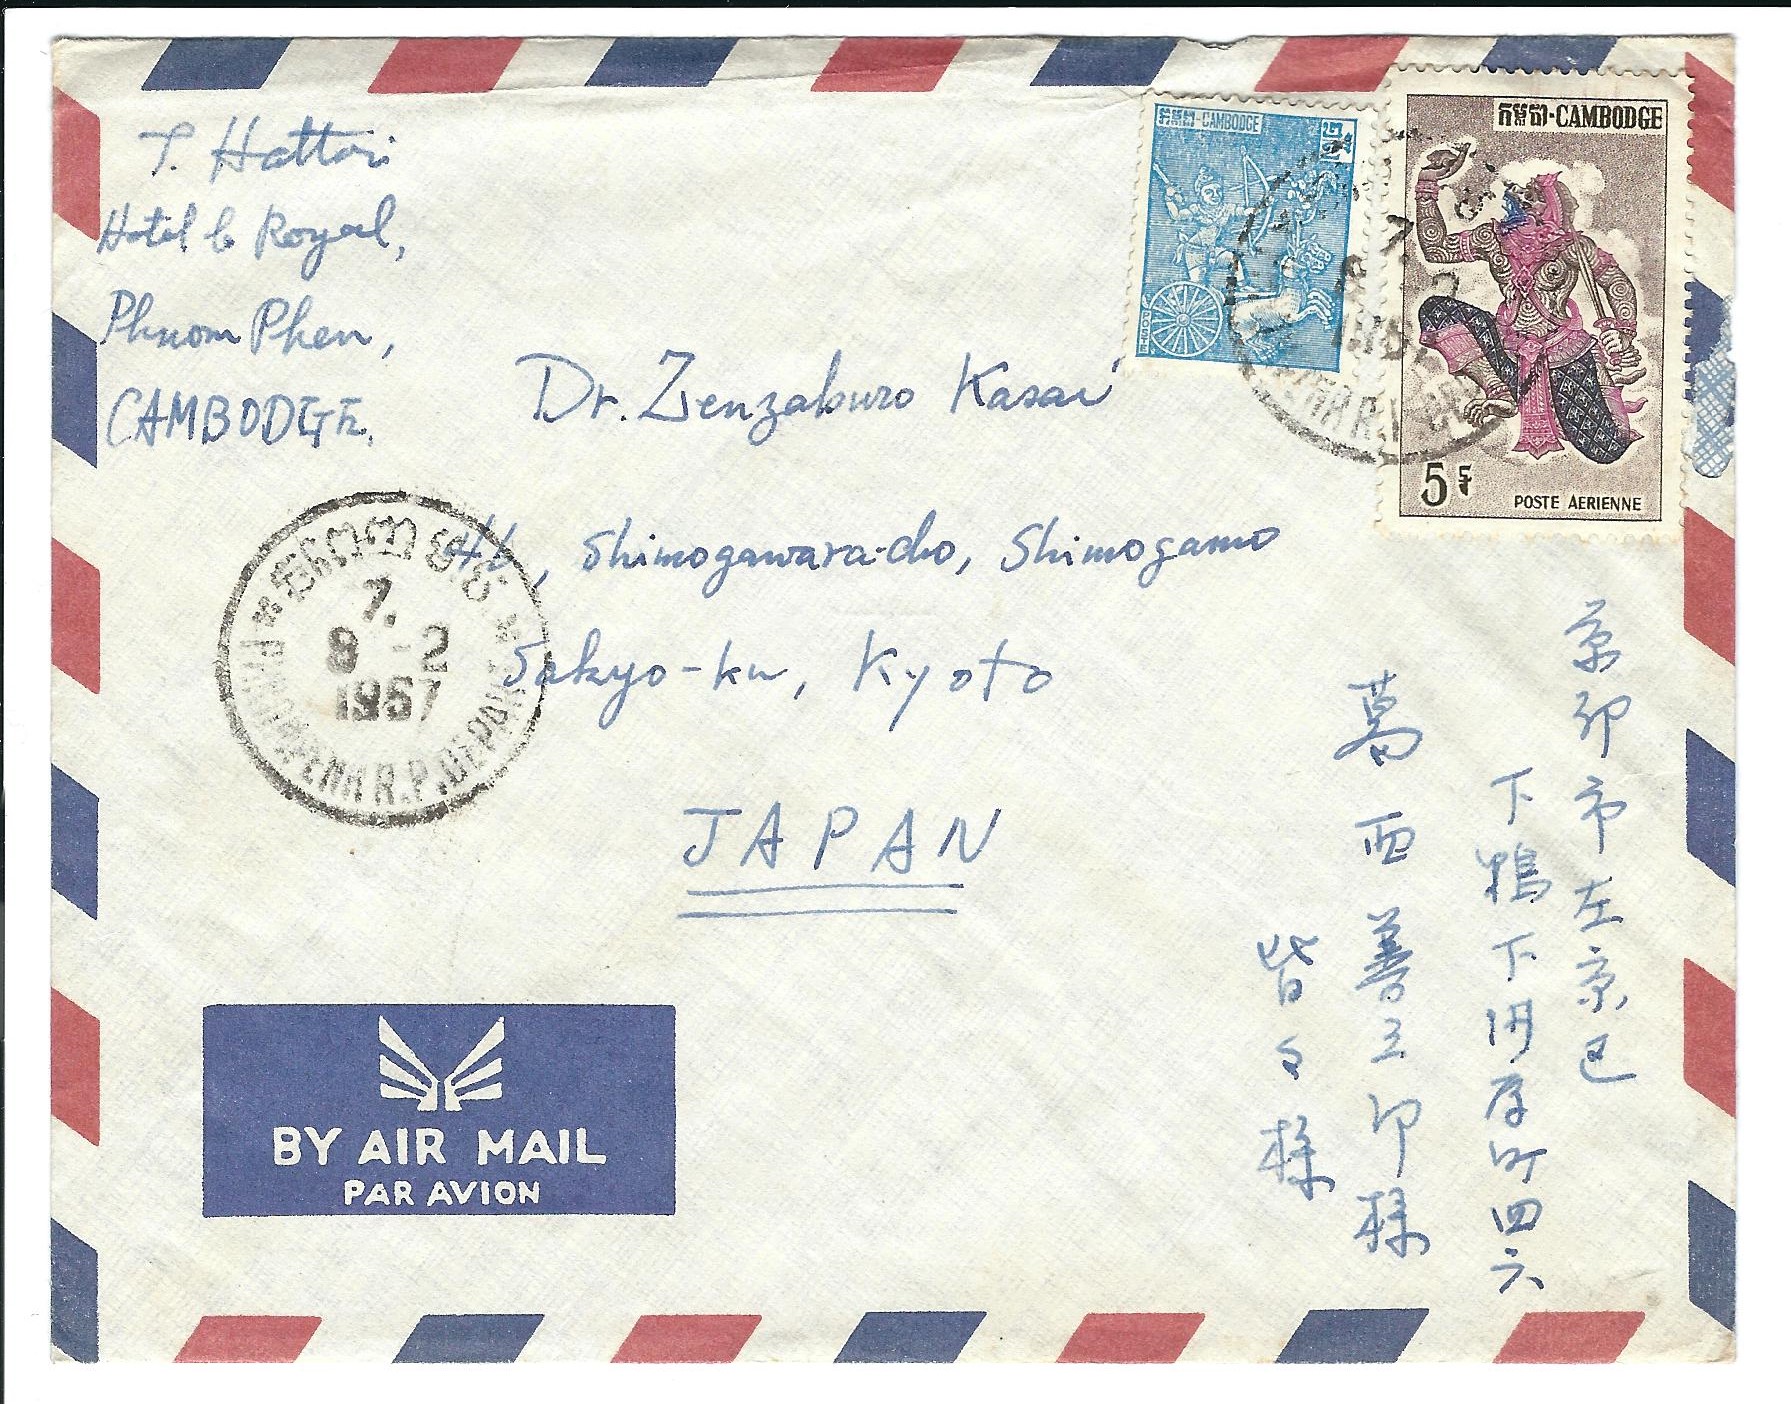 T. Hattori
Hotel le Royal,
Phnom Phen,
CAMBODGE.
កម្ពុជា-CAMBODGE
កម្ពុជា-CAMBODGE
5
POSTE AERIENNE
Dr. Zenzaburo Kasai
46, Shimogawara-cho, Shimogamo
Sakyo-ku, Kyoto
JAPAN
7.
8 -2
1967
PHNOM-PENH R.P. DEPART
7.
8 -2
京都市左京区
下鴨下川原町四六
葛西善三郎様
皆々様
BY AIR MAIL
PAR AVION